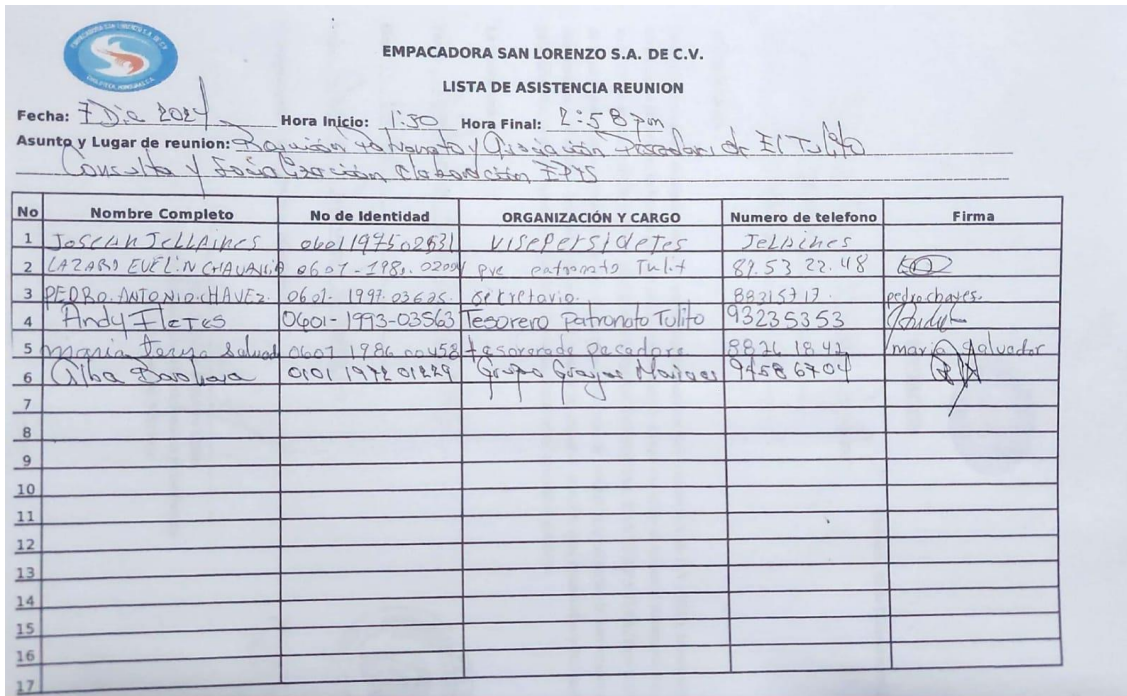 EMPACADORA SAN LORENZO S.A. DE C.V.
LISTA DE ASISTENCIA REUNION
Fecha: 7 Dic 2024 Hora Inicio: 1:30 Hora Final: 2:58 pm
Asunto y Lugar de reunion: Reunión Patronato y Asociación Pescadores de El Tulito
Consulta y Socialización elaboración
No Nombre Completo No de Identidad ORGANIZACIÓN Y CARGO Numero de telefono Firma
1 0601197502631 visepersidetes Jellines
2 LAZARO EVELIN pre patronato Tulit 89.53 22.48
3 PEDRO.ANTONIO.CHAVEZ. 0601-1997.03625. secretario. pedro chaves.
4 Andy Fletes 0601-1993-03563 Tesorero Patronato Tulito 93235353 Andy
5 maria 0601 1986 00458 maria Salvador
6 Alba 0101 1972 01229 Grupo 94586704
7
8
9
10
11
12
13
14
15
16
17